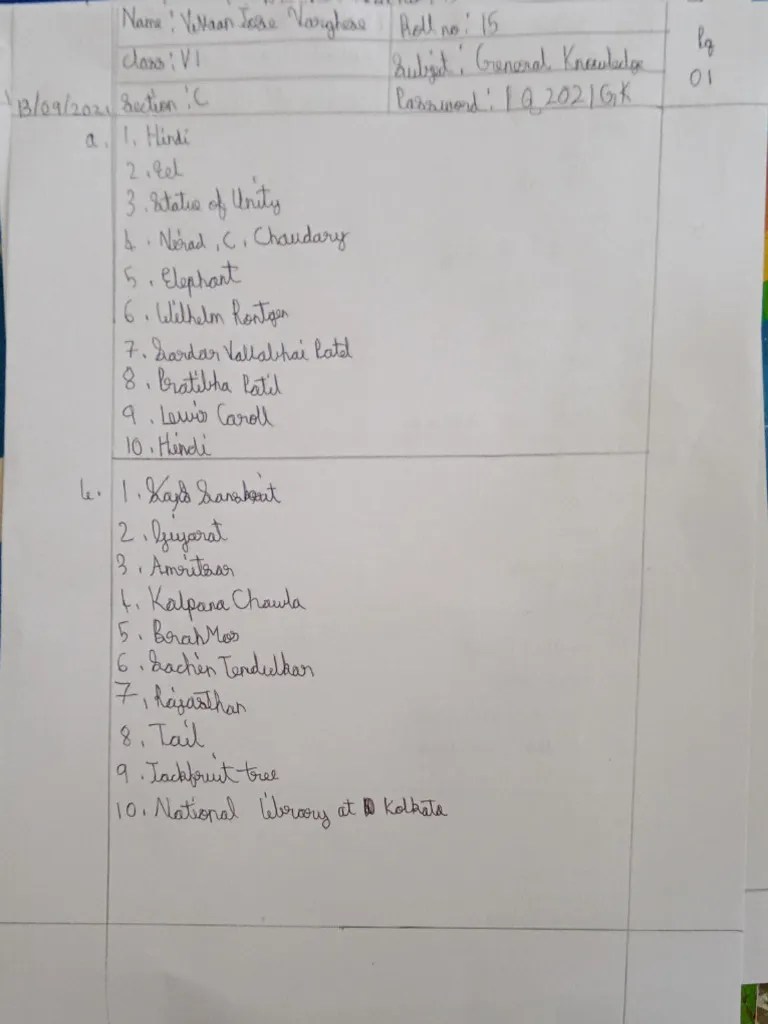 Name: Vihaan Jose Varghese Roll no: 15
Class: VI Subject: General Knowledge
Pg 01
13/09/2021 Section: C Password: 1Q2021GK
a. 1. Hindi
2. Eel
3. Statue of Unity
4. Nirad, C, Chaudary
5. Elephant
6. Wilhelm Rontgen
7. Sardar Vallabhai Patel
8. Pratibha Patil
9. Lewis Caroll
10. Hindi
b. 1. Sanskrit
2. Gujarat
3. Amritsar
4. Kalpana Chawla
5. BrahMos
6. Sachin Tendulkar
7. Rajasthan
8. Tail
9. Jackfruit tree
10. National library at Kolkata